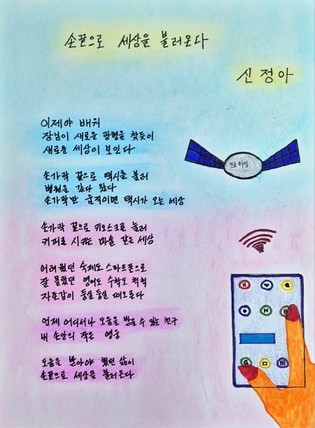 손끝으로 세상을 불러온다
신정아
이제야 배워
장님이 새로운 광명을 찾듯이
새로운 세상이 보인다
손가락 끝으로 택시를 불러
병원을 갔다 왔다
손가락만 움직이면 택시가 오는 세상
손가락 끝으로 키오스크를 눌러
커피를 시키는 마술 같은 세상
어려웠던 숙제도 스마트폰으로
잘 몰랐던 영어도 수학도 척척
자존감이 둥실둥실 떠오른다
언제 어디서나 도움을 받을 수 있는 친구
내 손안의 작은 영웅
도움을 받아야 했던 삶이
손끝으로 세상을 불러온다